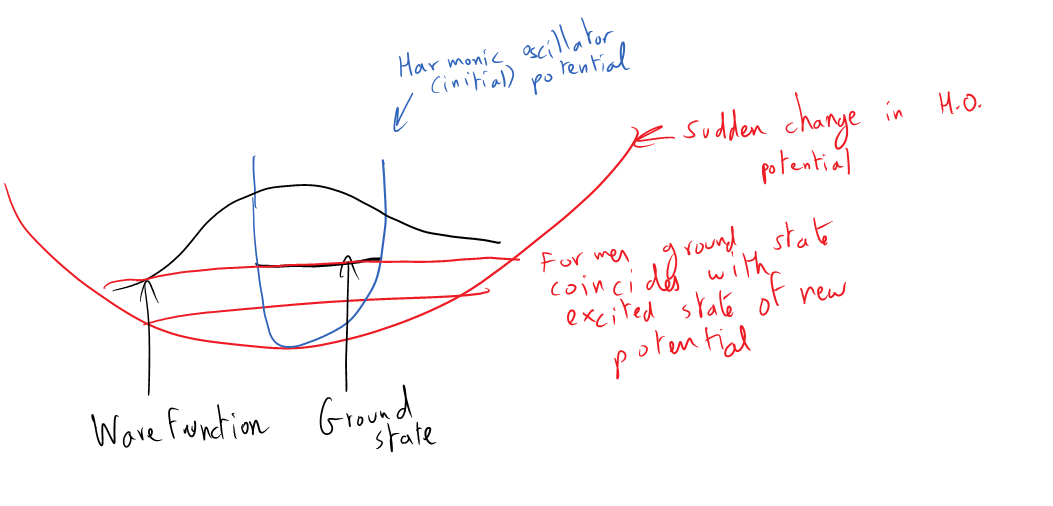 Harmonic oscillator
(initial) potential
Sudden change in H.O.
potential
Former ground state
coincides with
excited state of new
potential
Wavefunction
Ground
state